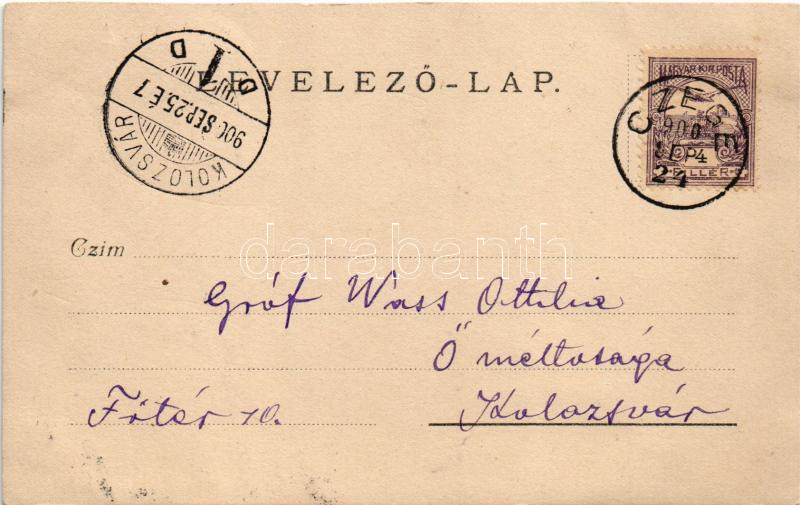 LEVELEZŐ-LAP.
KOLOZSVÁR
900 SEP. 25. É. 7
D I D
MAGYAR KIR. POSTA
CZEGE
900
SEP
24
FILLÉR
darabanth
Czim
Gróf Wass Ottilia
Ő méltosága
Főtér 10. Kolozsvár